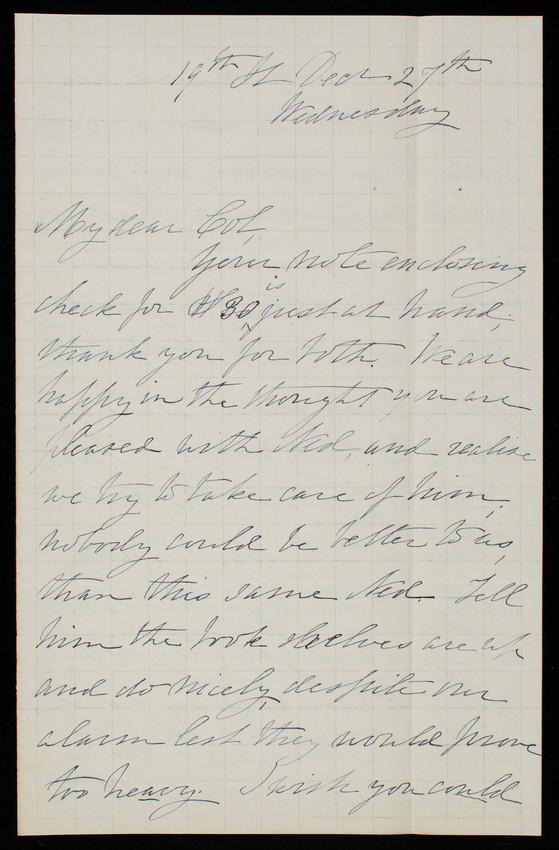 19th St Dec 27th
Wednesday
My dear Col,
Your note enclosing
is
check for $30 just at hand;
thank you for both. We are
happy in the thought you are
pleased with Ned, and realise
we try to take care of him;
nobody could be better to us,
than this same Ned. Tell
him the book shelves are up
and do nicely, despite our
alarm lest they would prove
too heavy. I wish you could